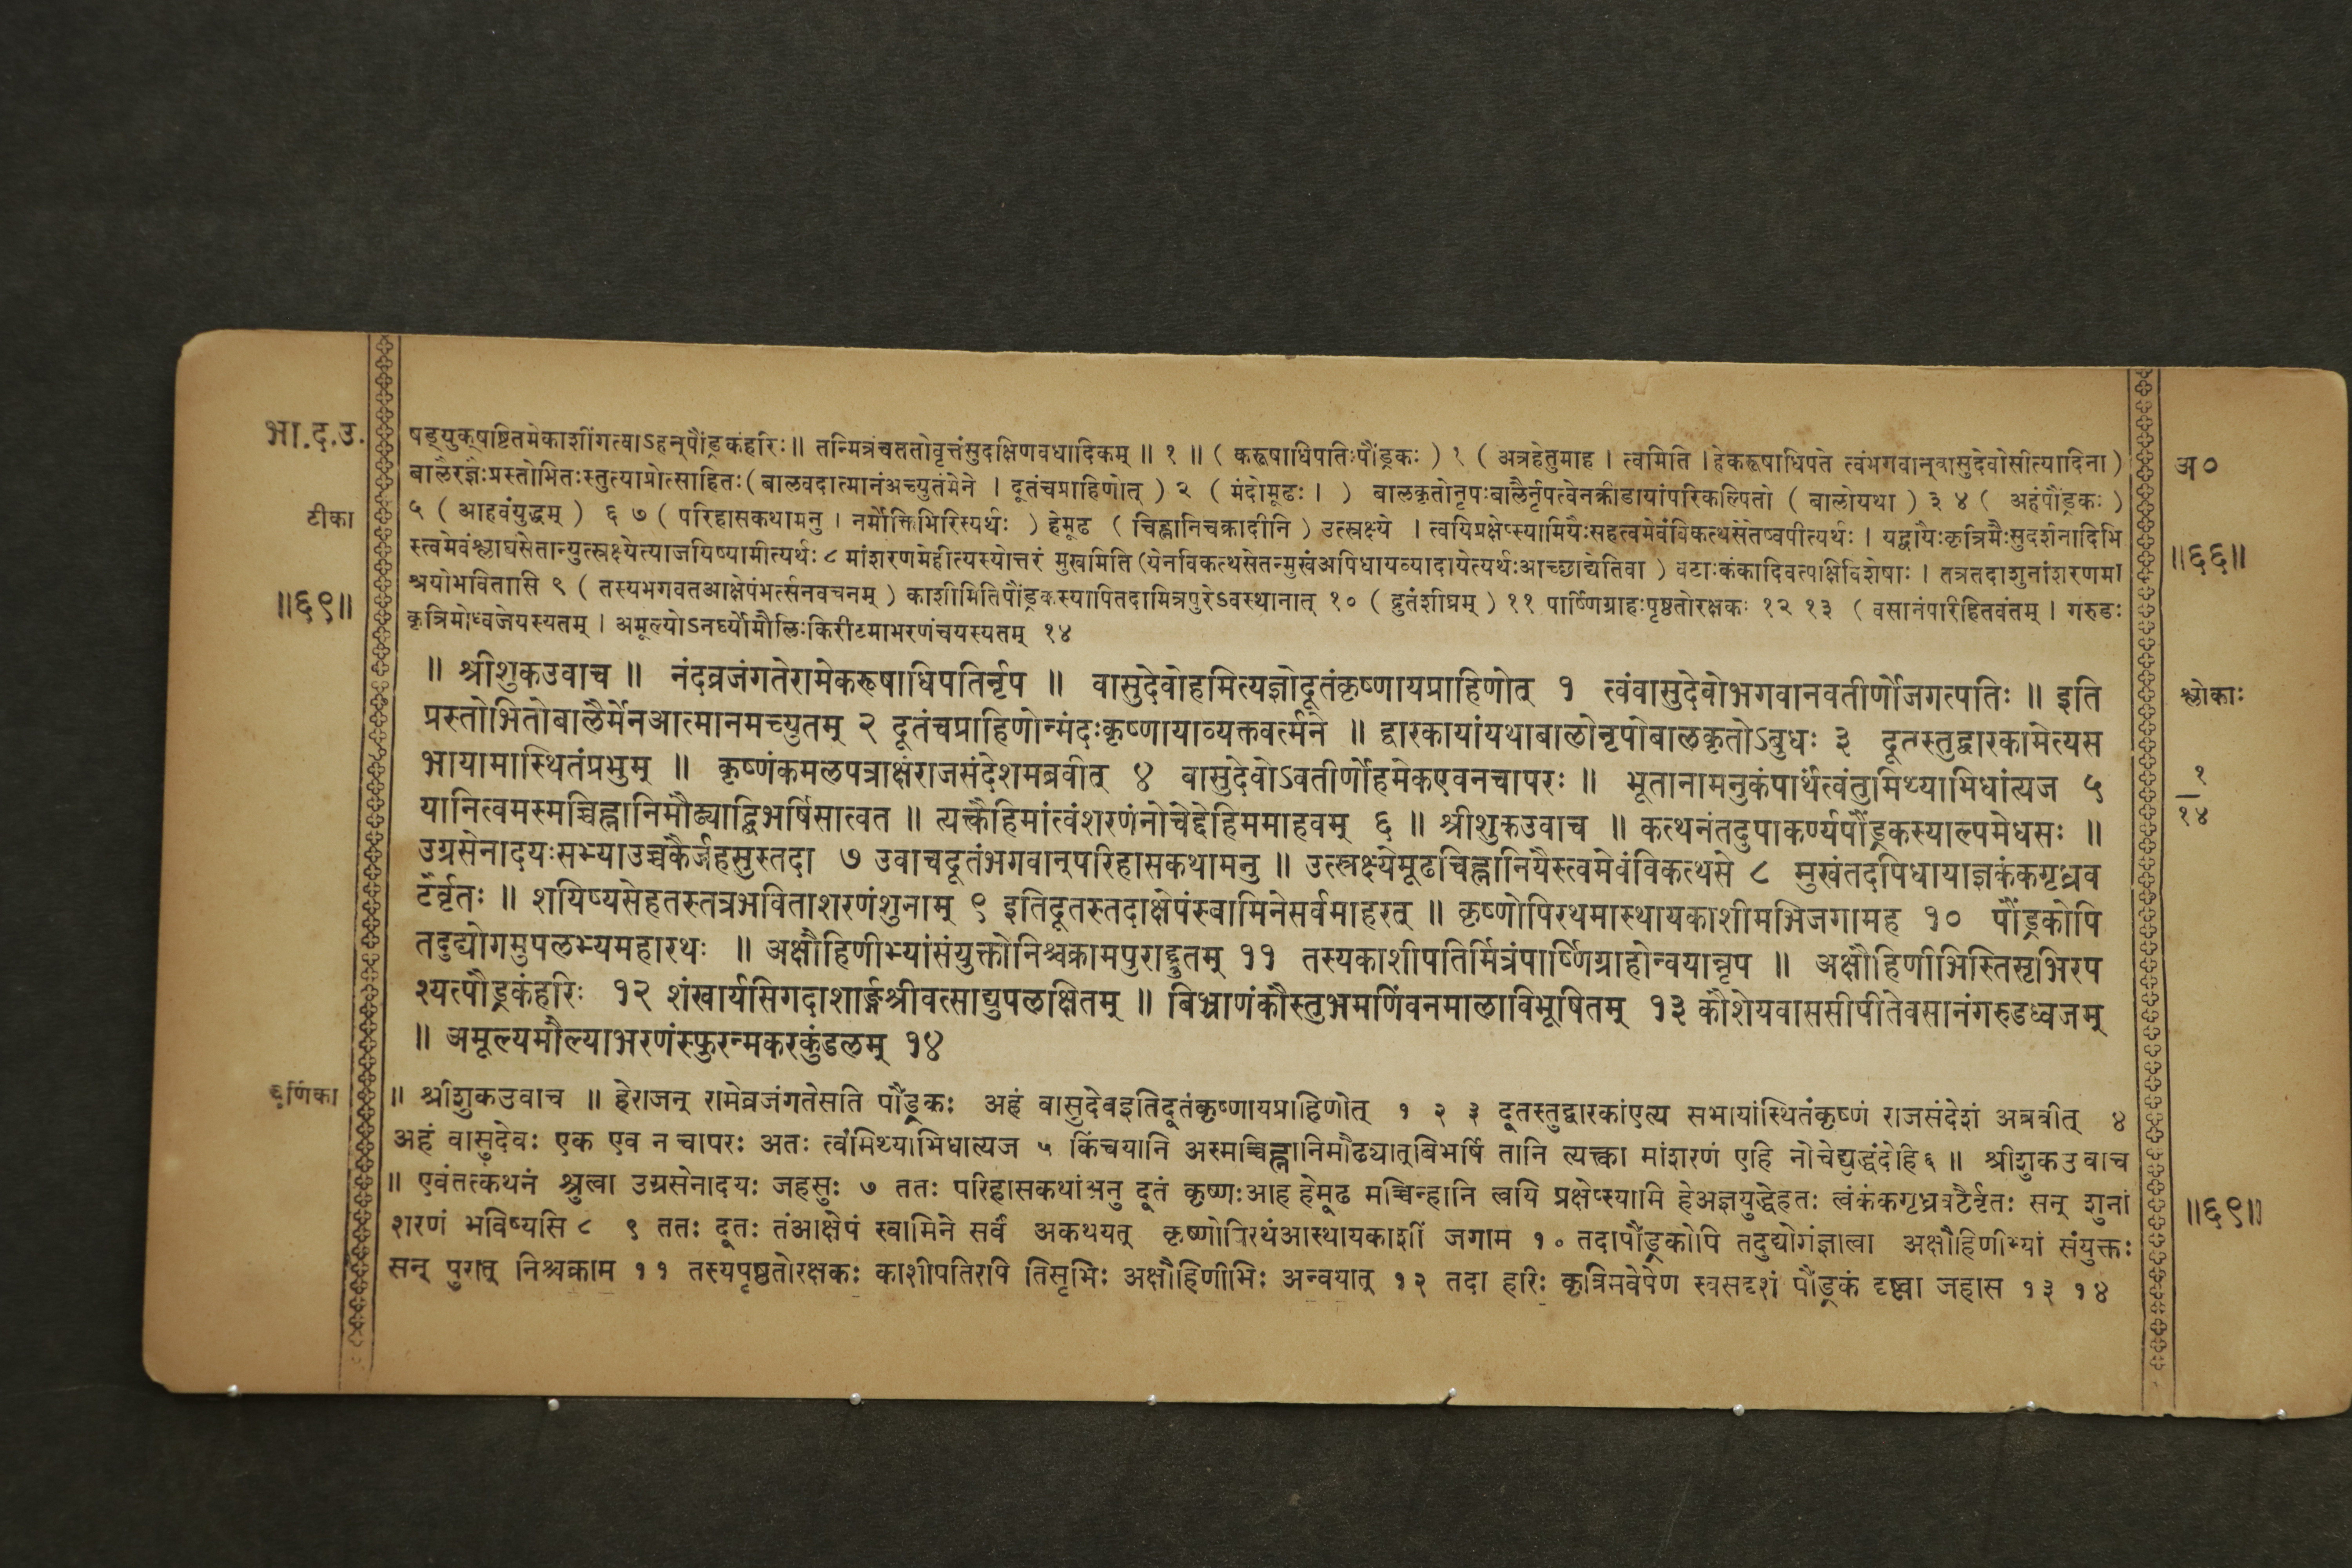 भा.द.उ.
टीका
॥६९॥
षड्युक्षष्टितमेकाशींगत्वाऽहन्पौंड्रकंहरिः॥ तन्मित्रंचततोवृत्तंसुदक्षिणवधादिकम् ॥ १ ॥ ( करूषाधिपतिःपौंड्रकः ) १ ( अत्रहेतुमाह । त्वमिति । हेकरूषाधिपते त्वंभगवान्वासुदेवोसीत्यादिना )
बालैरज्ञैःप्रस्तोभितःस्तुत्याप्रोत्साहितः(बालवदात्मानंअच्युतंमेने । दूतंचप्राहिणोत् ) २ ( मंदोमूढः । ) बालकृतोनृपःबालैर्नृपत्वेनक्रीडायांपरिकल्पितो ( बालोयथा ) ३ ४ ( अहंपौंड्रकः )
५ ( आहवंयुद्धम् ) ६ ७ ( परिहासकथामनु । नर्मोक्तिभिरित्यर्थः ) हेमूढ ( चिह्नानिचक्रादीनि ) उत्स्रक्ष्ये । त्वयिप्रक्षेप्स्यामियैःसहत्वमेवंविकत्थसेतेष्वपीत्यर्थः । यद्वायैःकृत्रिमैःसुदर्शनादिभि
स्त्वमेवंश्लाघसेतान्युत्स्रक्ष्येत्याजयिष्यामीत्यर्थः ८ मांशरणमेहीत्यस्योत्तरं मुखमिति (येनविकत्थसेतन्मुखंअपिधायव्यादायेत्यर्थःआच्छाद्येतिवा ) वटाःकंकादिवत्पक्षिविशेषाः । तत्रतदाशुनांशरणमा
श्रयोभवितासि ९ ( तस्यभगवतआक्षेपंभर्त्सनवचनम् ) काशीमितिपौंड्रकस्यापितदामित्रपुरेऽवस्थानात् १० ( द्रुतंशीघ्रम् ) ११ पार्ष्णिग्राहःपृष्ठतोरक्षकः १२ १३ ( वसानंपरिहितवंतम् । गरुडः
कृत्रिमोध्वजेयस्यतम् । अमूल्योऽनर्घ्योमौलिःकिरीटमाभरणंचयस्यतम् १४
॥ श्रीशुकउवाच ॥ नंदव्रजंगतेरामेकरूषाधिपतिर्नृप ॥ वासुदेवोहमित्यज्ञोदूतंकृष्णायप्राहिणोत् १ त्वंवासुदेवोभगवानवतीर्णोजगत्पतिः ॥ इति
प्रस्तोभितोबालैर्मेनआत्मानमच्युतम् २ दूतंचप्राहिणोन्मंदःकृष्णायाव्यक्तवर्त्मने ॥ द्वारकायांयथाबालोनृपोबालकृतोऽबुधः ३ दूतस्तुद्वारकामेत्यस
भायामास्थितंप्रभुम् ॥ कृष्णंकमलपत्राक्षंराजसंदेशमब्रवीत् ४ वासुदेवोऽवतीर्णोहमेकएवनचापरः ॥ भूतानामनुकंपार्थंत्वंतुमिथ्याभिधांत्यज ५
यानित्वमस्मच्चिह्नानिमौढ्याद्बिभर्षिसात्वत ॥ त्यक्त्वैहिमांत्वंशरणंनोचेद्देहिममाहवम् ६ ॥ श्रीशुकउवाच ॥ कत्थनंतदुपाकर्ण्यपौंड्रकस्याल्पमेधसः ॥
उग्रसेनादयःसभ्याउच्चकैर्जहसुस्तदा ७ उवाचदूतंभगवान्परिहासकथामनु ॥ उत्स्रक्ष्येमूढचिह्नानियैस्त्वमेवंविकत्थसे ८ मुखंतदपिधायाज्ञकंकगृध्रव
टैर्वृतः ॥ शयिष्यसेहतस्तत्रभविताशरणंशुनाम् ९ इतिदूतस्तदाक्षेपंस्वामिनेसर्वमाहरत् ॥ कृष्णोपिरथमास्थायकाशीमभिजगामह १० पौंड्रकोपि
तदुद्योगमुपलभ्यमहारथः ॥ अक्षौहिणीभ्यांसंयुक्तोनिश्चक्रामपुराद्द्रुतम् ११ तस्यकाशीपतिर्मित्रंपार्ष्णिग्राहोन्वयान्नृप ॥ अक्षौहिणीभिस्तिसृभिरप
श्यत्पौंड्रकंहरिः १२ शंखार्यसिगदाशार्ङ्गश्रीवत्साद्युपलक्षितम् ॥ बिभ्राणंकौस्तुभमणिंवनमालाविभूषितम् १३ कौशेयवाससीपीतेवसानंगरुडध्वजम्
॥ अमूल्यमौल्याभरणंस्फुरन्मकरकुंडलम् १४
चूर्णिका
॥ श्रीशुकउवाच ॥ हेराजन् रामेव्रजंगतेसति पौंड्रकः अहं वासुदेवइतिदूतंकृष्णायप्राहिणोत् १ २ ३ दूतस्तुद्वारकांएत्य सभायांस्थितंकृष्णं राजसंदेशं अब्रवीत् ४
अहं वासुदेवः एक एव न चापरः अतः त्वंमिथ्याभिधात्यज ५ किंचयानि अस्मच्चिह्नानिमौढ्यात्बिभर्षि तानि त्यक्त्वा मांशरणं एहि नोचेद्युद्धंदेहि६ ॥ श्रीशुकउवाच
॥ एवंतत्कथनं श्रुत्वा उग्रसेनादयः जहसुः ७ ततः परिहासकथांअनु दूतं कृष्णःआह हेमूढ मच्चिन्हानि त्वयि प्रक्षेप्स्यामि हेअज्ञयुद्धेहतः त्वंकंकगृध्रवटैर्वृतः सन् शुनां
शरणं भविष्यसि ८ ९ ततः दूतः तंआक्षेपं स्वामिने सर्वं अकथयत् कृष्णोपिरथंआस्थायकाशीं जगाम १० तदापौंड्रकोपि तदुद्योगंज्ञात्वा अक्षौहिणीभ्यां संयुक्तः
सन् पुरात् निश्चक्राम ११ तस्यपृष्ठतोरक्षकः काशीपतिरपि तिसृभिः अक्षौहिणीभिः अन्वयात् १२ तदा हरिः कृत्रिमवेषेण स्वसदृशं पौंड्रकं दृष्ट्वा जहास १३ १४
अ०
॥६६॥
श्लोकाः
१
१४
॥६९॥